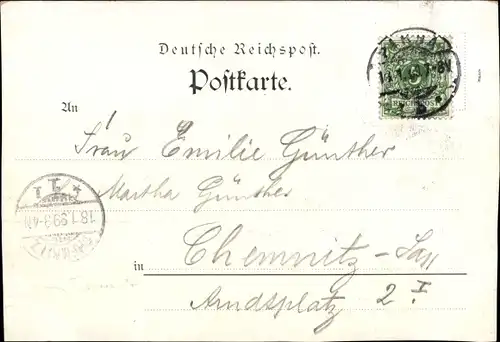 Deutsche Reichspost.
Postkarte.
REICHSPOST
An
Frau Emilie Günther
Martha Günther
in Chemnitz-Sax
Arndtsplatz 2 I
18.1.99.3-4N